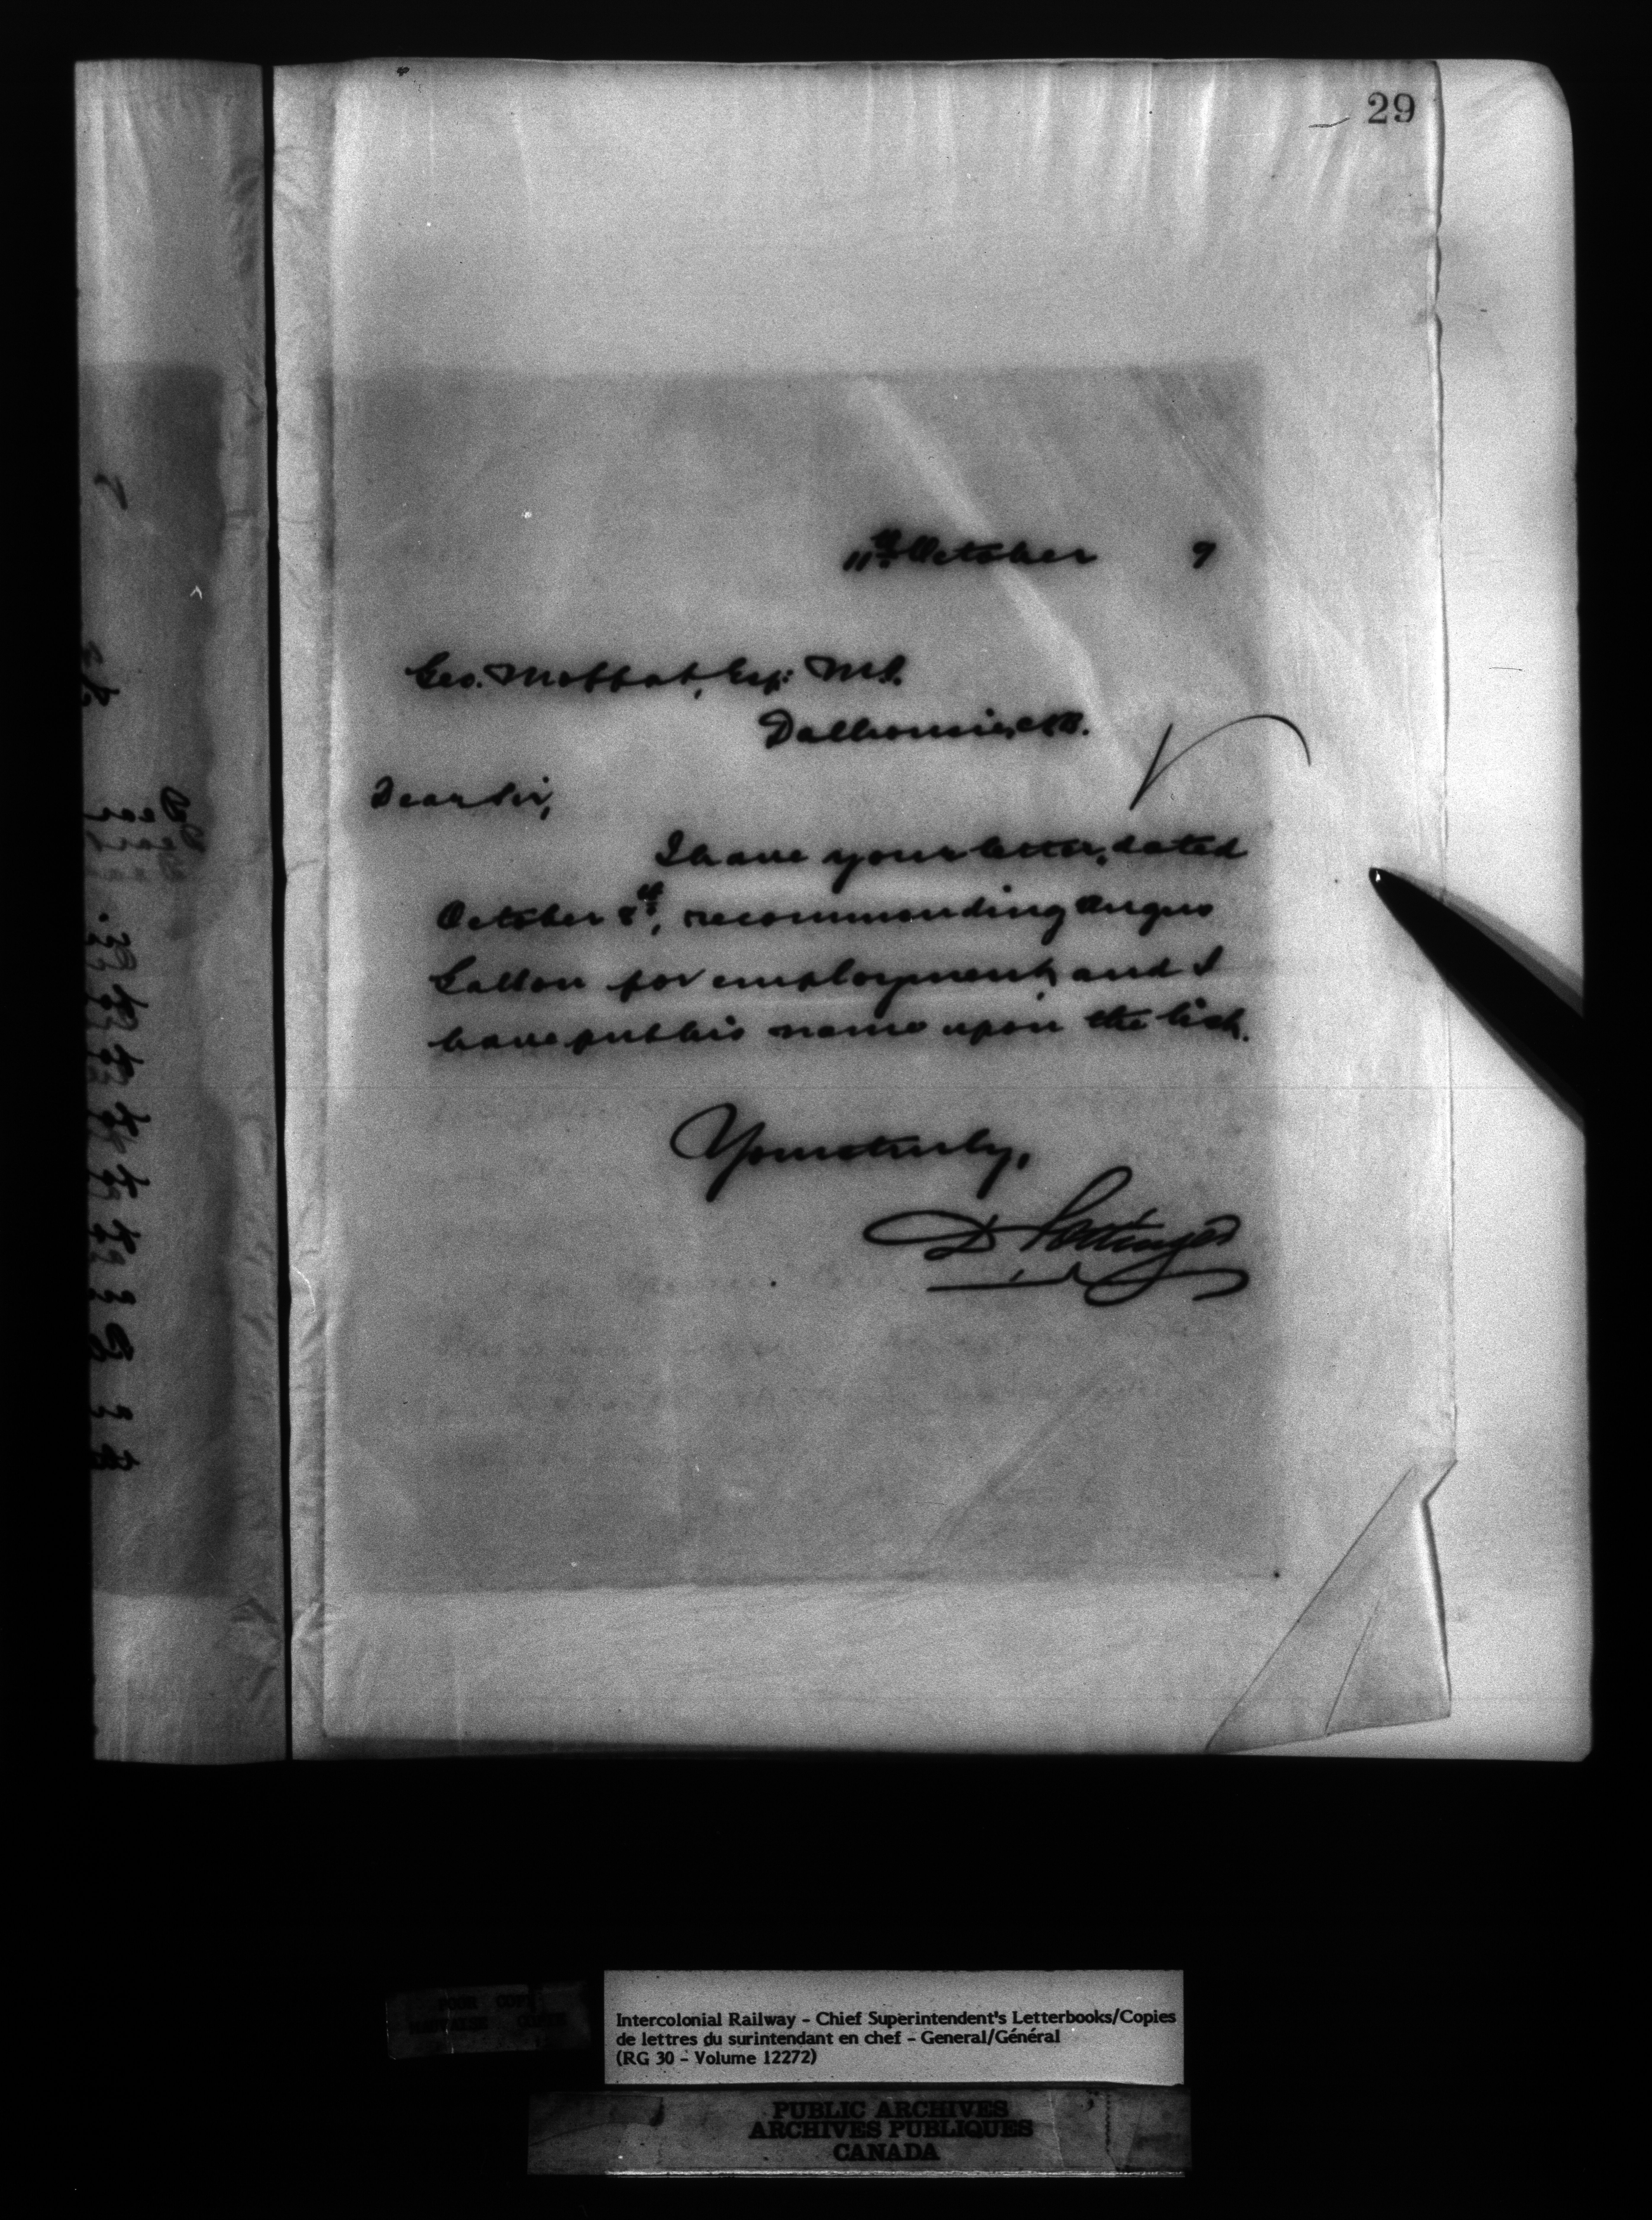 29
11th October 9
Geo. Moffat, Esq: M.P.
Dalhousie, N.B.
Dear Sir,
I have your letter, dated
October 8th, recommending Angus
for employment, and I
have put his name upon the list.
Yours truly,
D Pottinger
Intercolonial Railway - Chief Superintendent's Letterbooks/Copies
de lettres du surintendant en chef - General/Général
(RG 30 - Volume 12272)
PUBLIC ARCHIVES
ARCHIVES PUBLIQUES
CANADA